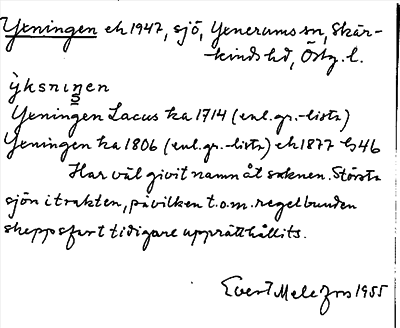 Yxningen ek 1947, sjö, Yxnerums sn, Skär-
kinds hd, Östg. l.
ỳksniŋen
Yxningen Lacus ka 1714 (enl. gr.-lista)
Yxningen ka 1806 (enl. gr.-lista) ek 1877 bs 46
Har väl givit namn åt socknen. Största
sjön i trakten, på vilken t.o.m. regelbunden
skeppsfart tidigare upprätthållits.
Evert Melefors 1955